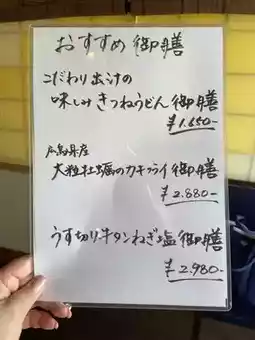 おすすめ御膳
こだわり出汁の
味しみきつねうどん御膳
¥1.650-
広島県産
大粒牡蠣のカキフライ御膳
¥2.880-
うす切り牛タンねぎ塩御膳
¥2.980-